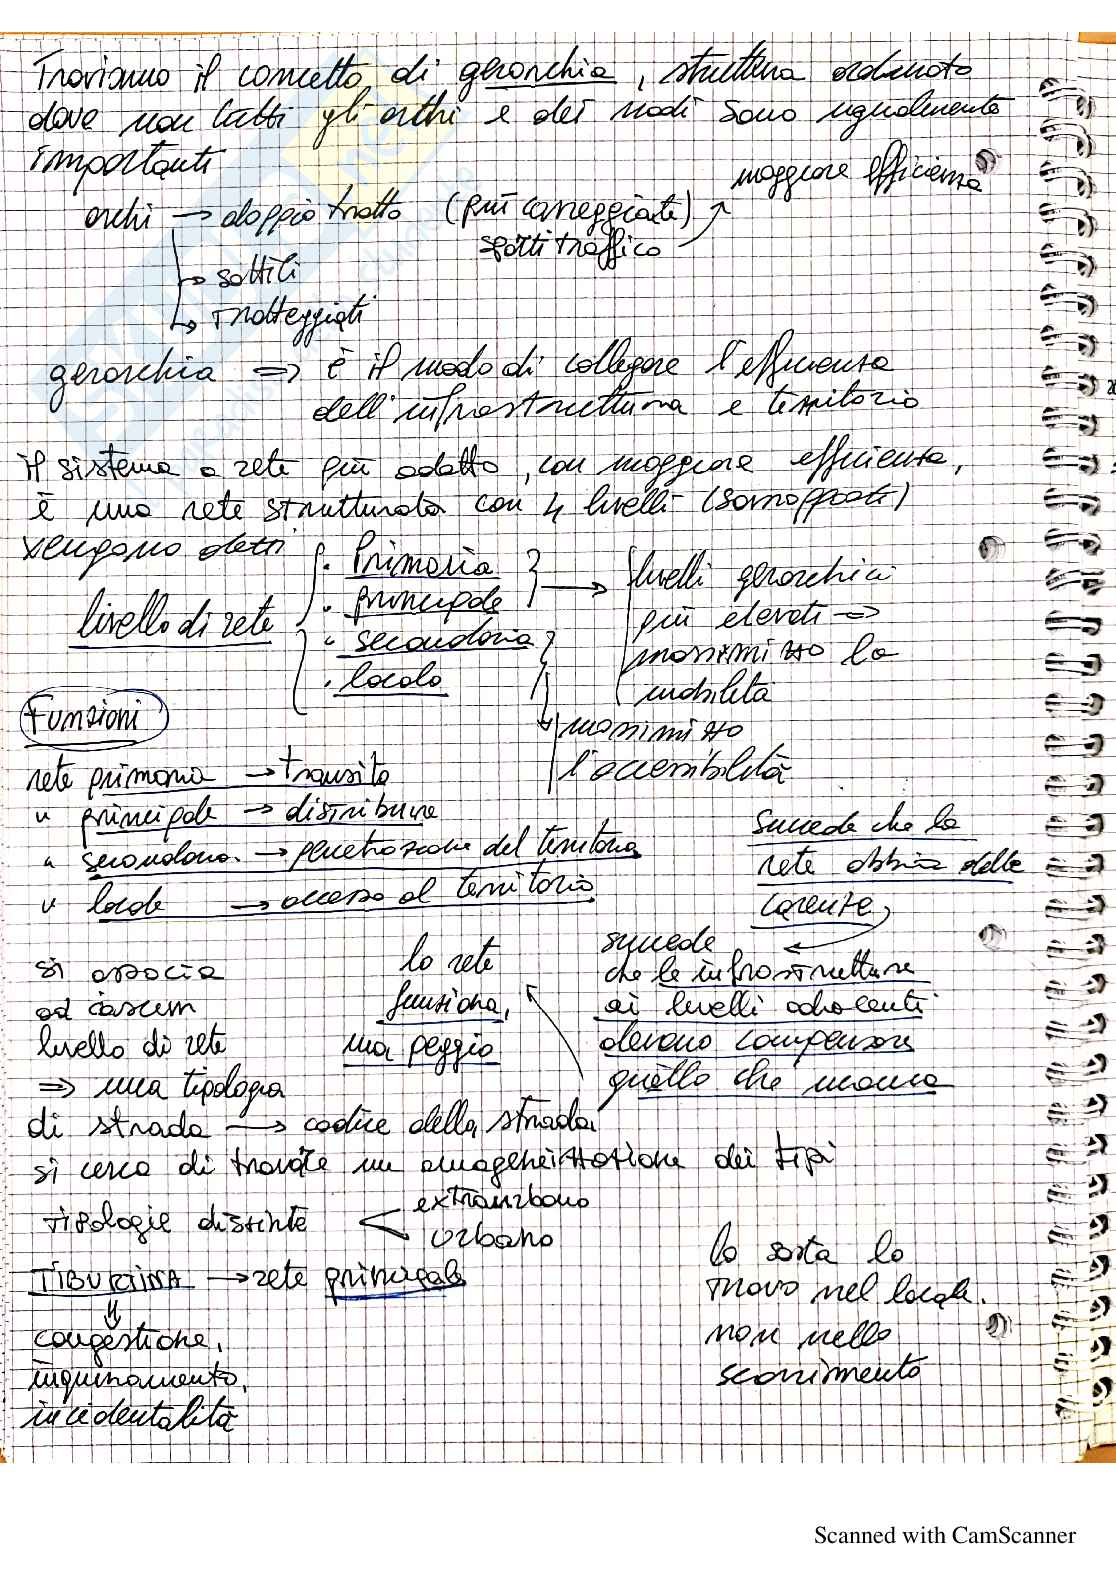 Troviamo il concetto di gerarchia, struttura ordinata
dove non tutti gli archi e dei nodi sono ugualmente
importanti
maggiore efficienza
archi → doppio tratto (più carreggiate)
spotti traffico
↳ sottili
↳ tratteggiati
gerarchia ⇒ è il modo di collegare l'efficienza
dell'infrastruttura e territorio
il sistema a rete più adatto, con maggiore efficienza,
è una rete strutturata con 4 livelli (sovrapposti)
vengono detti
livello di rete
· Primaria
· principale
· secondaria
· locale
→ livelli gerarchici
più elevati ⇒
massimizzo la
mobilità
massimizzo
l'accessibilità
Funzioni
rete primaria → transito
" principale → distribuire
" secondaria. → penetrazione del territorio
" locale → accesso al territorio
succede che la
rete abbia delle
carenze,
succede
che le infrastrutture
ai livelli adiacenti
devono compensare
quello che manca
la rete
funziona,
ma peggio
si associa
ad ciascun
livello di rete
⇒ una tipologia
di strada → codice della strada.
si cerca di trovare un omogeneizzazione dei tipi
tipologie distinte < extraurbano
urbano
TIBURTINA → rete principale
⇓
congestione,
inquinamento,
incidentalità
la sosta la
trovo nel locale.
non nello
scorrimento
Scanned with CamScanner